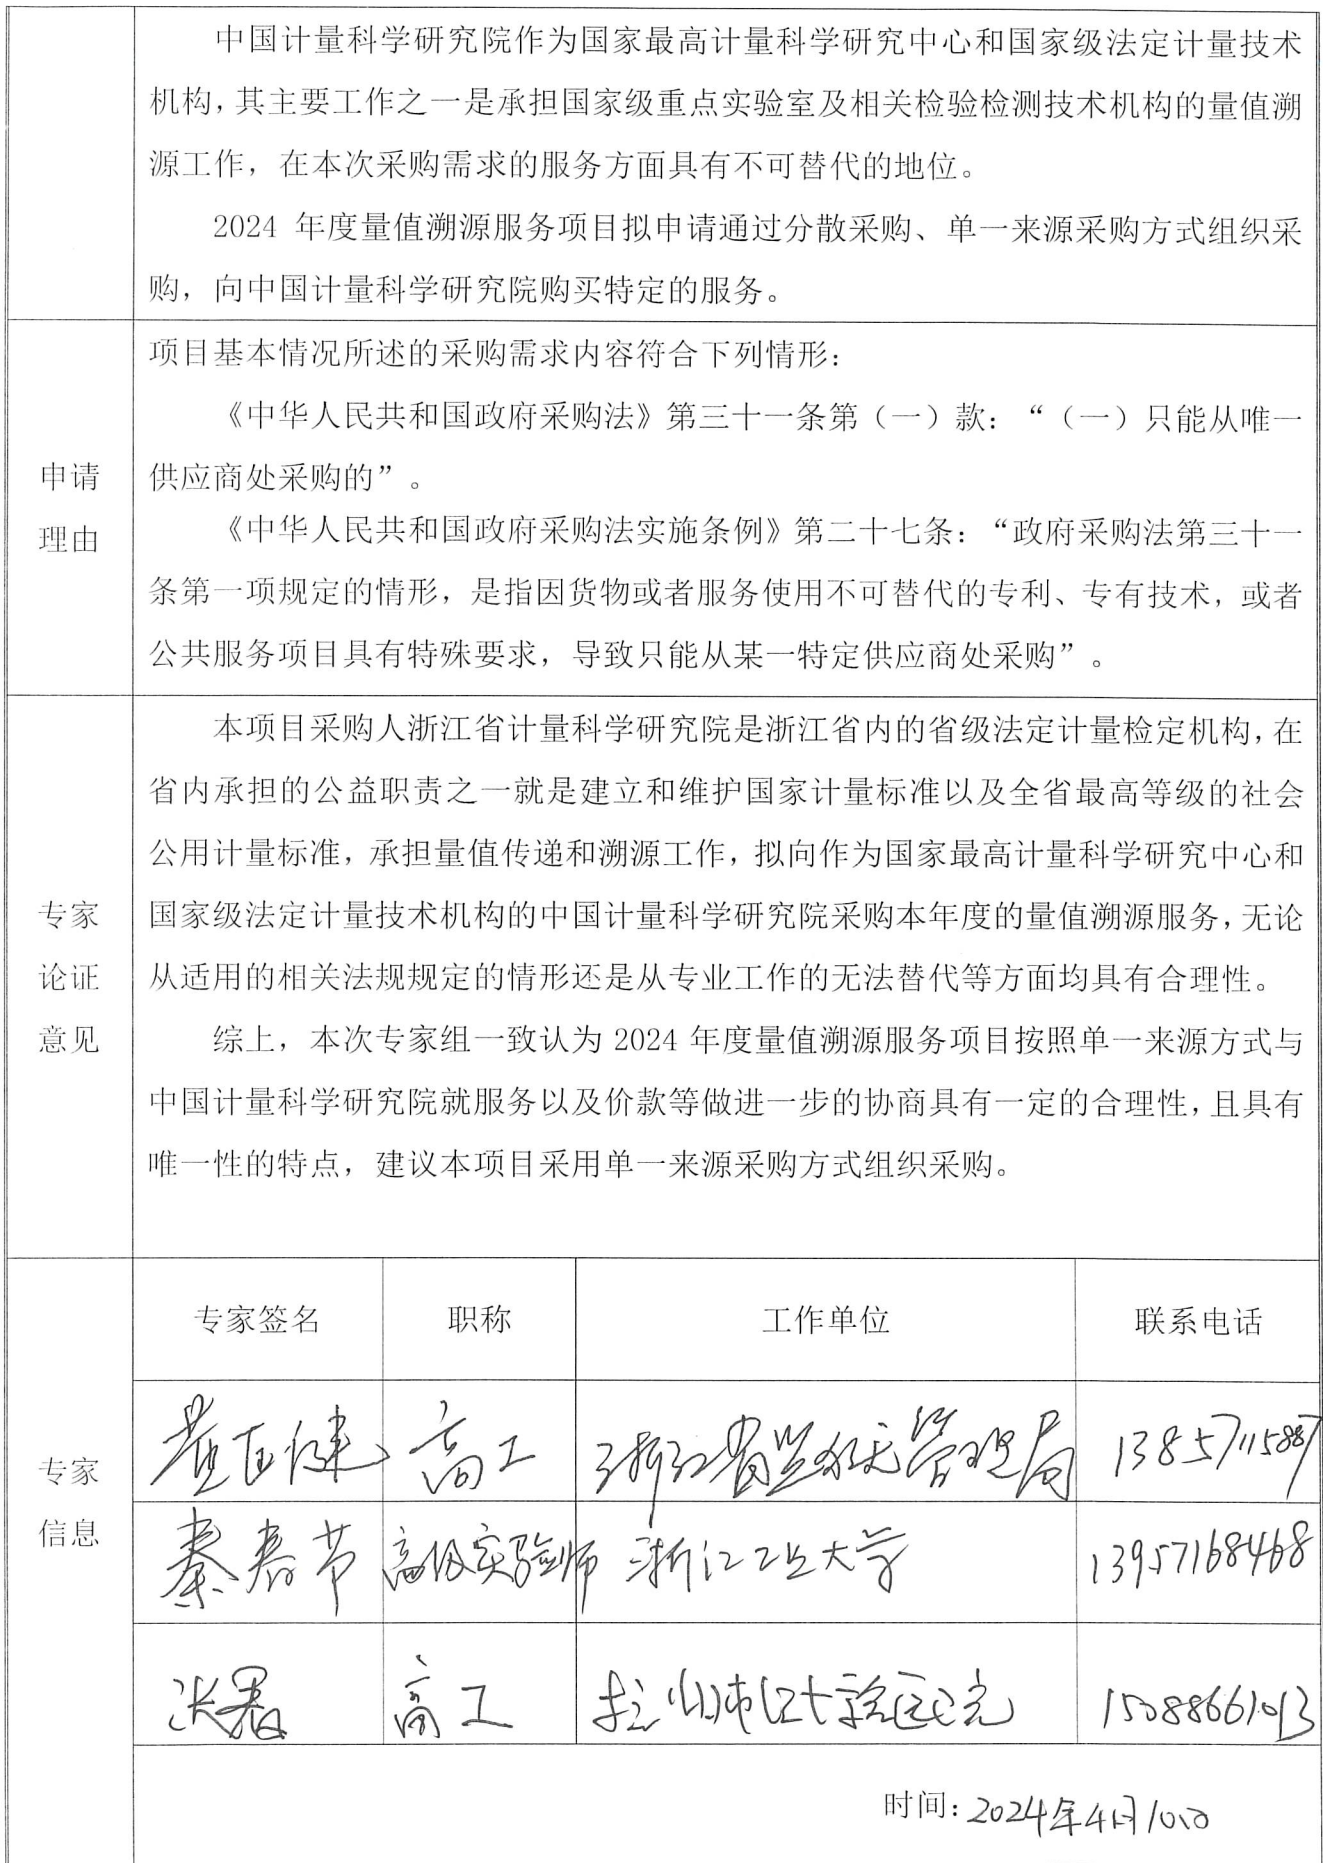 中国计量科学研究院作为国家最高计量科学研究中心和国家级法定计量技术
机构，其主要工作之一是承担国家级重点实验室及相关检验检测技术机构的量值溯
源工作，在本次采购需求的服务方面具有不可替代的地位。
2024 年度量值溯源服务项目拟申请通过分散采购、单一来源采购方式组织采
购，向中国计量科学研究院购买特定的服务。
申请
理由
项目基本情况所述的采购需求内容符合下列情形：
《中华人民共和国政府采购法》第三十一条第（一）款：“（一）只能从唯一
供应商处采购的”。
《中华人民共和国政府采购法实施条例》第二十七条：“政府采购法第三十一
条第一项规定的情形，是指因货物或者服务使用不可替代的专利、专有技术，或者
公共服务项目具有特殊要求，导致只能从某一特定供应商处采购”。
专家
论证
意见
本项目采购人浙江省计量科学研究院是浙江省内的省级法定计量检定机构，在
省内承担的公益职责之一就是建立和维护国家计量标准以及全省最高等级的社会
公用计量标准，承担量值传递和溯源工作，拟向作为国家最高计量科学研究中心和
国家级法定计量技术机构的中国计量科学研究院采购本年度的量值溯源服务，无论
从适用的相关法规规定的情形还是从专业工作的无法替代等方面均具有合理性。
综上，本次专家组一致认为 2024 年度量值溯源服务项目按照单一来源方式与
中国计量科学研究院就服务以及价款等做进一步的协商具有一定的合理性，且具有
唯一性的特点，建议本项目采用单一来源采购方式组织采购。
专家
信息
专家签名 职称 工作单位 联系电话
高工 浙江省监狱管理局 13857115887
秦春节 高级实验师 浙江工业大学 13957168468
高工 杭州市红十字会医院 15088661013
时间：2024年4月10日